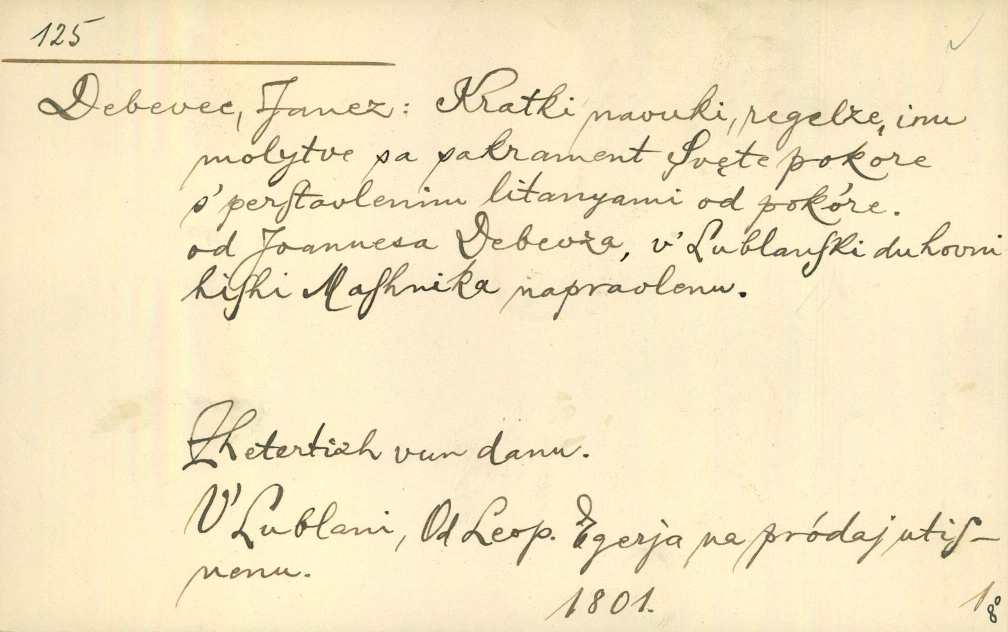 125
Debevec, Janez: Kratki navuki, regelze, inu
molytve sa sakrament Svęte pokore
s' perſtavleninu litanyami od pokóre.
od Joannesa Debevza, v' Lublanſki duhovni
hiſhi Maſhnika napravlenu.
Zhetertizh vun danu.
V' Lublani, Od Leop. Egerja na pródaj utiſ-
nenu.
1801.
8°